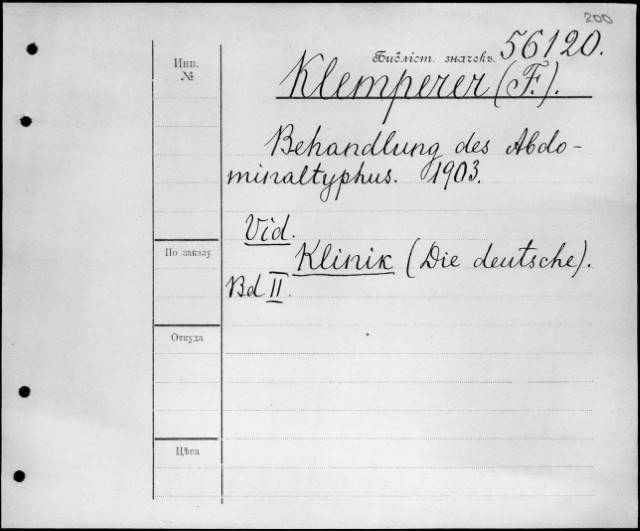 200
Инв. №
Библіот. значокъ. 56120.
Klemperer (F.).
Behandlung des Abdo-
minaltyphus. 1903.
Vid.
По заказу
Klinik (Die deutsche).
Bd II.
Откуда
Цѣна